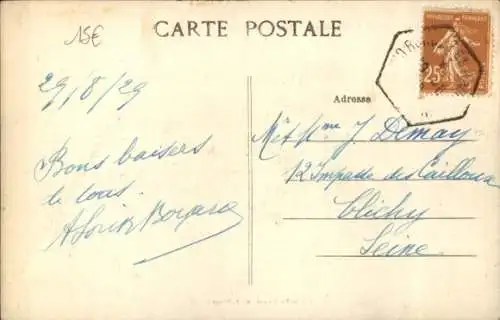 15€
CARTE POSTALE
25c
29/8/29
Adresse
Bons baisers
de tous.
Mr et Mme J. Demay
12 Impasse des Cailloux
Clichy
Seine